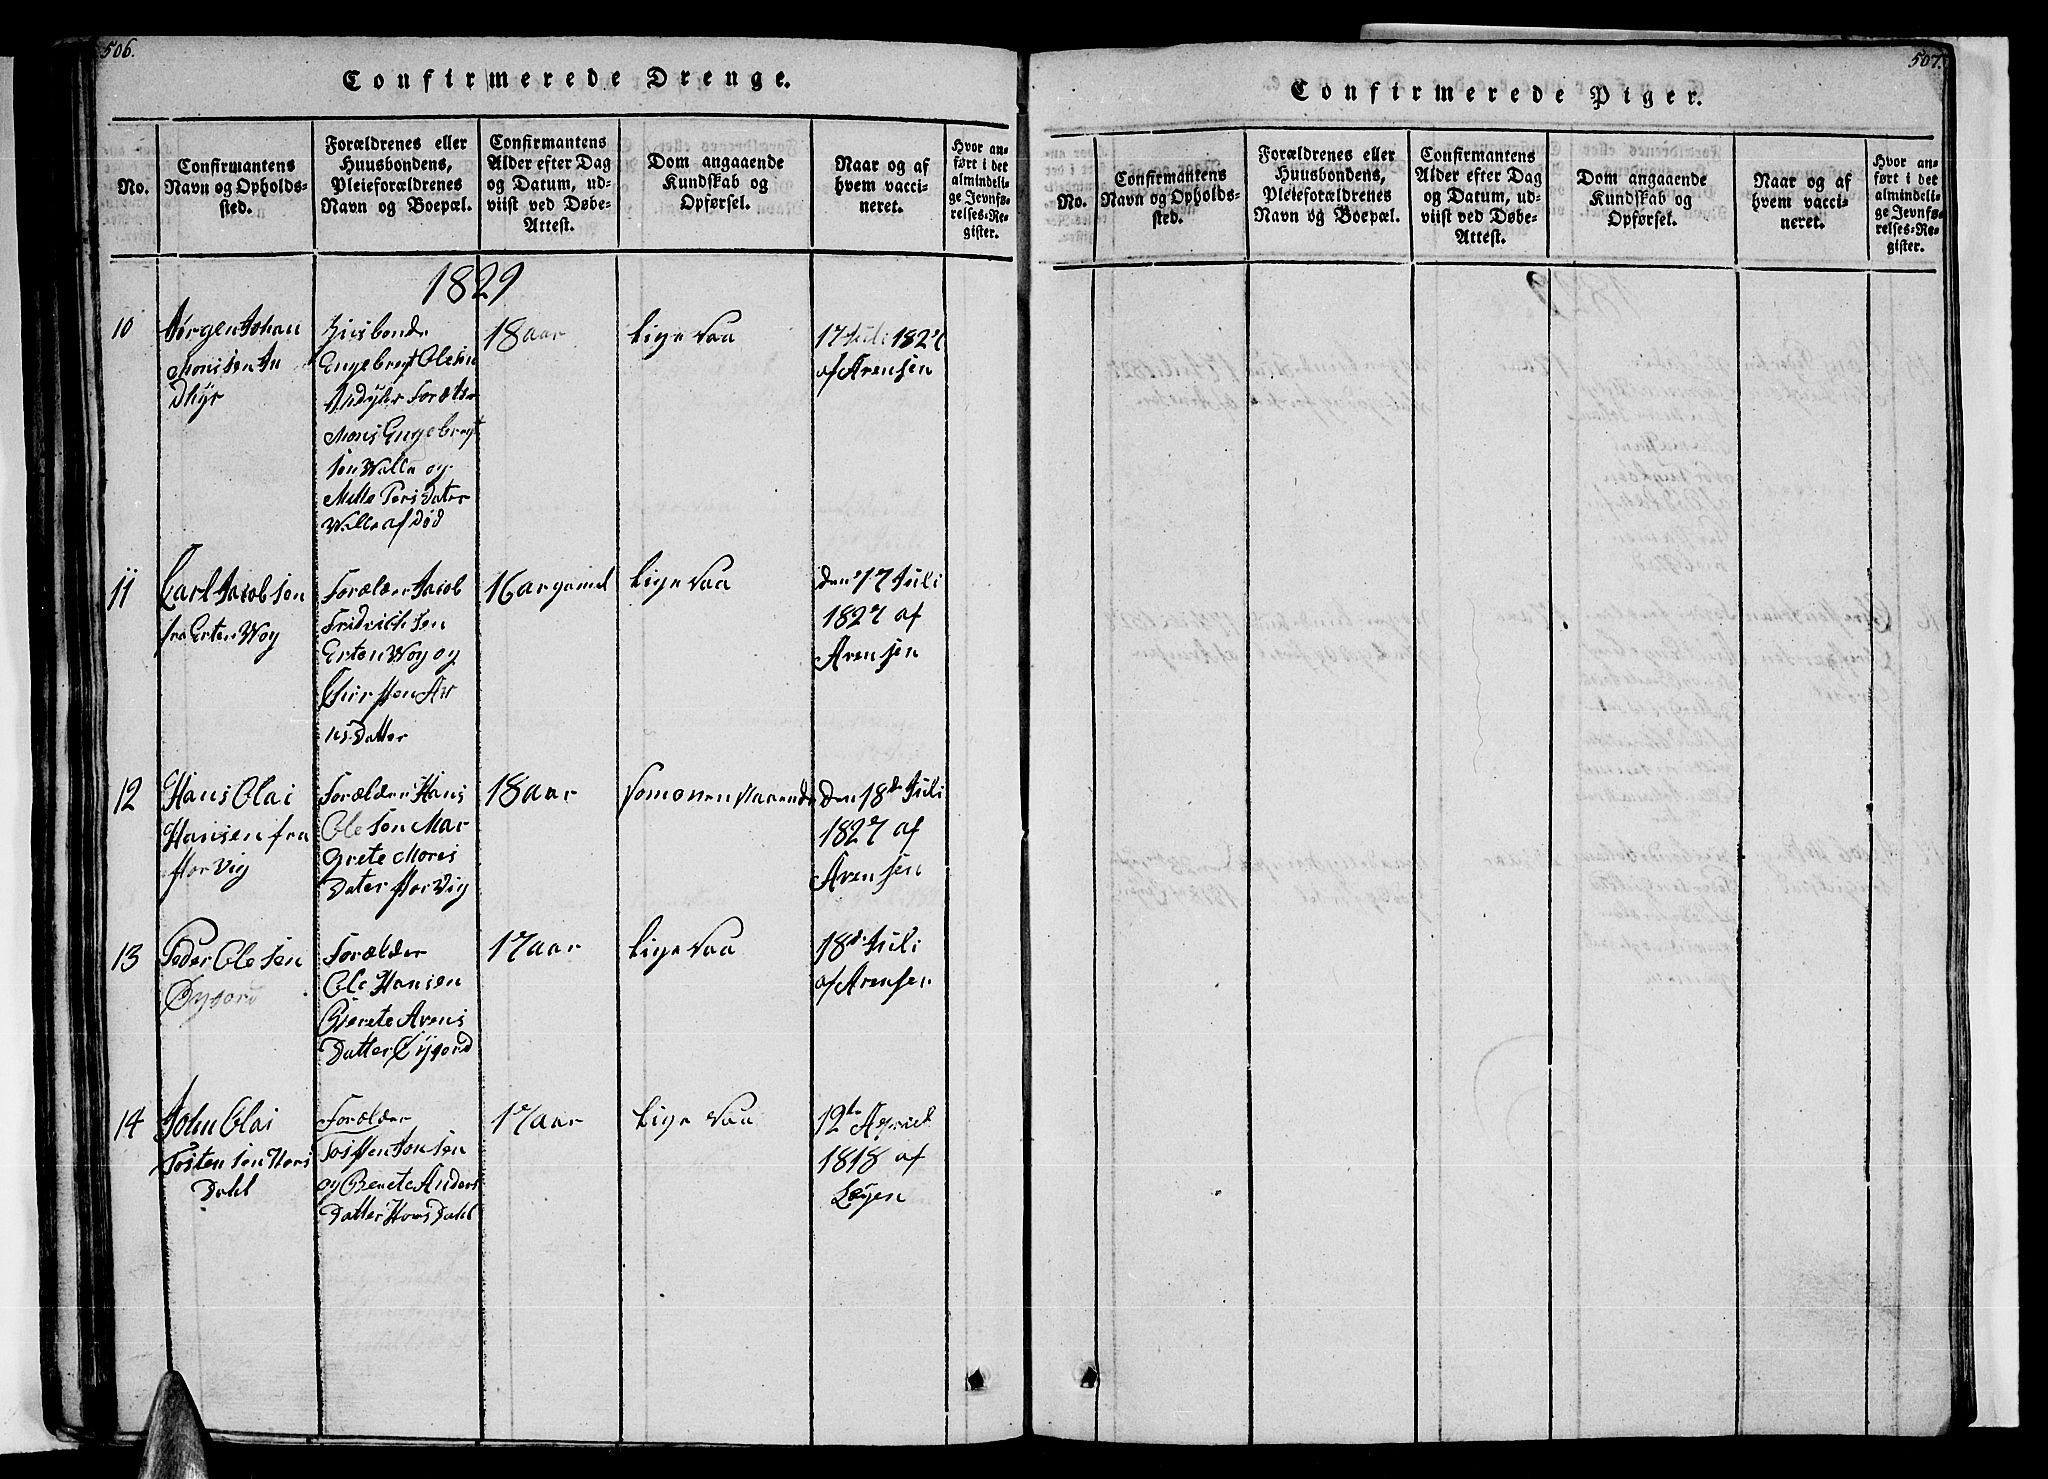 506.
Confirmerede Drenge.
No.
Confirmantens
Navn og Opholds-
sted.
Forældrenes eller
Huusbondens,
Pleieforældrenes
Navn og Boepæl.
Confirmantens
Alder efter Dag
og Datum, ud-
viist ved Døbe-
Attest.
Dom angaaende
Kundskab og
Opførsel.
Naar og af
hvem vacci-
neret.
Hvor an-
ført i det
almindeli-
ge Jevnfø-
relses-Re-
gister.
1829
10
Jørgen Johan
Monsen
Huusbonde
Engebregt Olesen
Mons Engebregt
sen Valle og
Mette Pers Dater
Valle af Død
18 aar
Lige saa
17 Juli 1827
af Arensen
11
Carl Jacobsen
fra Erten Vog
Forælder Jacob
Fridrichsen
Erten Vog og
Chirsten Ar
ns Datter
16 ar gamel
Lige saa
den 17 Juli
1827 af
Arensen
12
Hans Olai
Hansen fra
Horvig
Forælder Hans
Olesen Mar
grete Mons
Dater Horvig
18 aar
Som ovenstaaende
den 18d Juli
1827 af
Arensen
13
Peder Olesen
Øyjord
Forælder
Ole Hansen
Berete Arens
Datter Øyjord
17 aar
Lige saa
18d Juli
af Arensen
14
John Olai
Tostensen Hors
Dahl
Forælder
Tosten Jonsen
og Berete Anders
Datter Hors Dahl
17 aar
Lige saa
12te April
1818 af
Løgen
507.
Confirmerede Piger.
No.
Confirmantens
Navn og Opholds-
sted.
Forældrenes eller
Huusbondens,
Pleieforældrenes
Navn og Boepæl.
Confirmantens
Alder efter Dag
og Datum, ud-
viist ved Døbe-
Attest.
Dom angaaende
Kundskab og
Opførsel.
Naar og af
hvem vacci-
neret.
Hvor an-
ført i det
almindeli-
ge Jevnfø-
relses-Re-
gister.